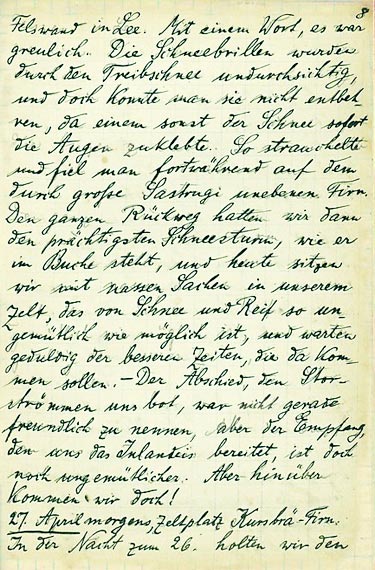 8
Felswand in Lee. Mit einem Wort, es war
greulich. Die Schneebrillen wurden
durch den Treibschnee undurchsichtig,
und doch konnte man sie nicht entbeh
ren, da einem sonst der Schnee sofort
die Augen zuklebte. So strauchelte
und fiel man fortwährend auf dem
durch große Sastrugi unebenen Firn.
Den ganzen Rückweg hatten wir dann
den prächtigsten Schneesturm, wie er
im Buche steht, und heute sitzen
wir mit nassen Sachen in unserem
Zelt, das von Schnee und Reif so un
gemütlich wie möglich ist, und warten
geduldig der besseren Zeiten, die da kom-
men sollen. – Der Abschied, den Stor-
strömmen uns bot, war nicht gerade
freundlich zu nennen, aber der Empfang,
den uns das Inlandeis bereitet, ist doch
noch ungemütlicher. Aber hinüber
kommen wir doch!
27. April morgens, Zeltplatz Kursbrä-Firn.
In der Nacht zum 26. holten wir den